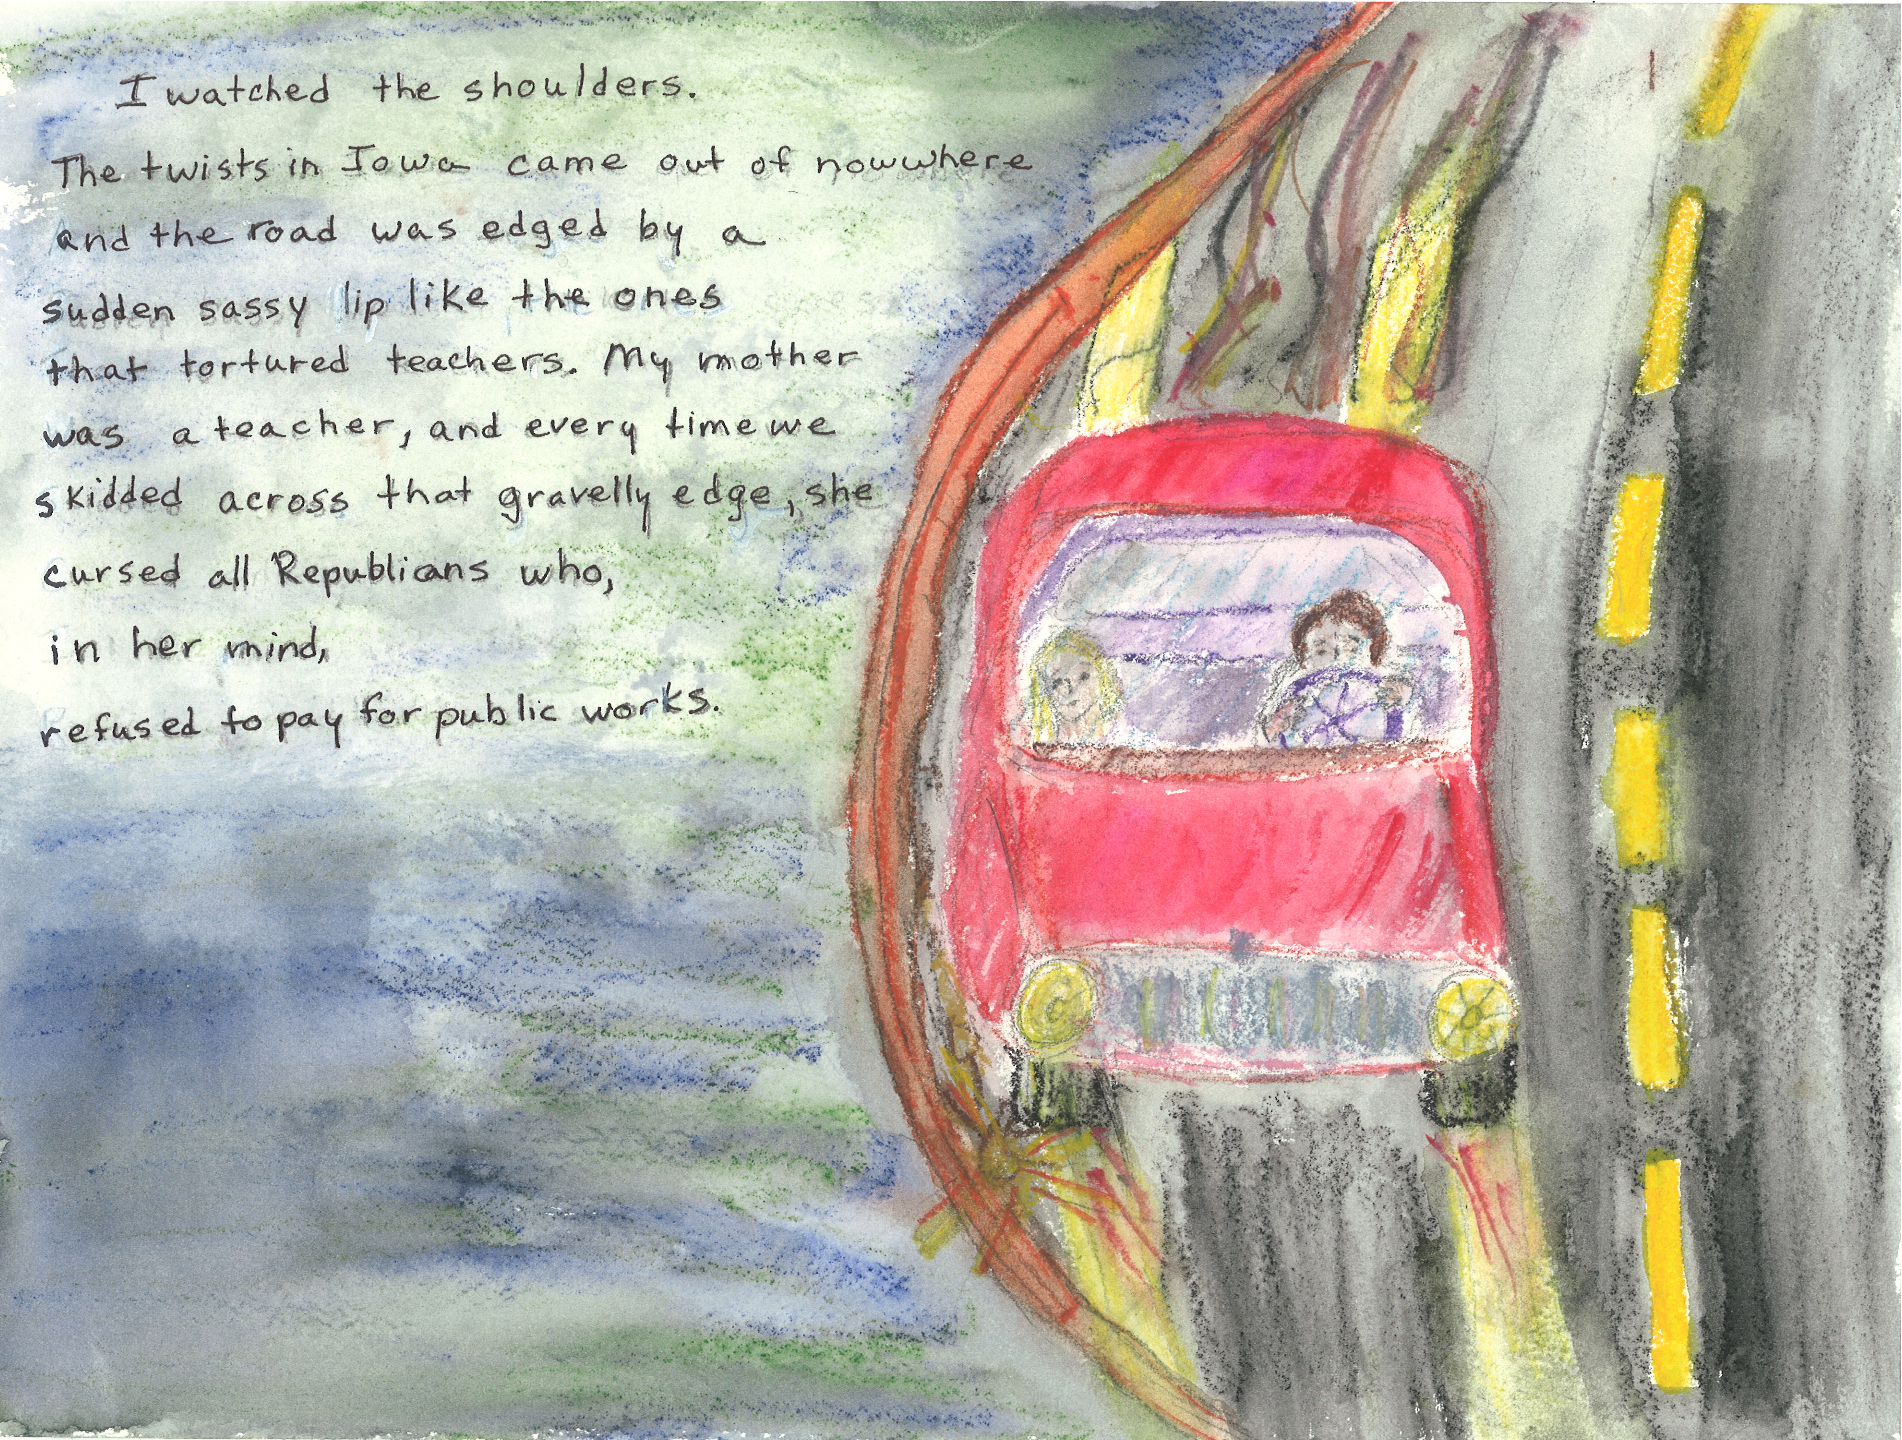 I watched the shoulders.
The twists in Iowa came out of nowwhere
and the road was edged by a
sudden sassy lip like the ones
that tortured teachers. My mother
was a teacher, and every time we
skidded across that gravelly edge, she
cursed all Republicans who,
in her mind,
refused to pay for public works.